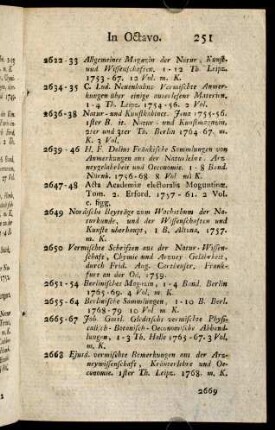 In Octavo. 251
2622-33 Allgemeines Magazin der Natur, Kunst,
und Wissenschaften. 1-12 Th. Leipz.
1753-67. 12 Vol. m. K.
2634-35 C. Lud. Neuenhahns Vermischte Anmer-
kungen über einige auserlesene Materien,
1-4 Th. Leipz. 1754-56. 2 Vol.
2636-38 Natur- und Kunstkabinet. Jena 1755-56.
1ster B. it. Natur- und Kunstmagazin.
2ter und 3ter Th. Berlin 1764 67. m.
K. 3 Vol.
2639-46 H. F. Delius Fränkische Sammlungen von
Anmerkungen aus der Naturlehre, Arz-
neygelahrtheit und Oeconomie. 1-8 Band.
Nürnb. 1756-68 8 Vol m K.
2647-48 Acta Academiæ electoralis Moguntinæ,
Tom. 2. Erford. 1757-61. 2 Vol.
c. figg.
2649 Nordische Beyträge zum Wachsthum der Na-
turkunde, und der Wissenschaften und
Künste überhaupt, 1 B. Altona, 1757.
m. K.
2650 Vermischte Schriften aus der Natur-Wissen-
schaft, Chymie und Arzney Gelahrheit,
durch Frid. Aug. Cartheuser, Frank-
furt an der Od. 1759.
2651-54 Berlinisches Magazin, 1-4 Band. Berlin
1765-69. 4 Vol. m. K.
2655-64 Berlinische Sammlungen, 1-10 B. Berl.
1768-79 10 Vol m. K.
2665-67 Joh. Gottl. Gleditsche vermischte Physi-
calisch-Botanisch-Oeconomische Abhand-
lungen, 1-3 Th. Halle 1765-67. 3 Vol.
m. K.
2668 Ejusd. vermischte Bemerkungen aus der Arz-
neywissenschaft, Kräuterlehre und Oe-
conomie. 1ster Th. Leipz. 1768. m. K.
2669